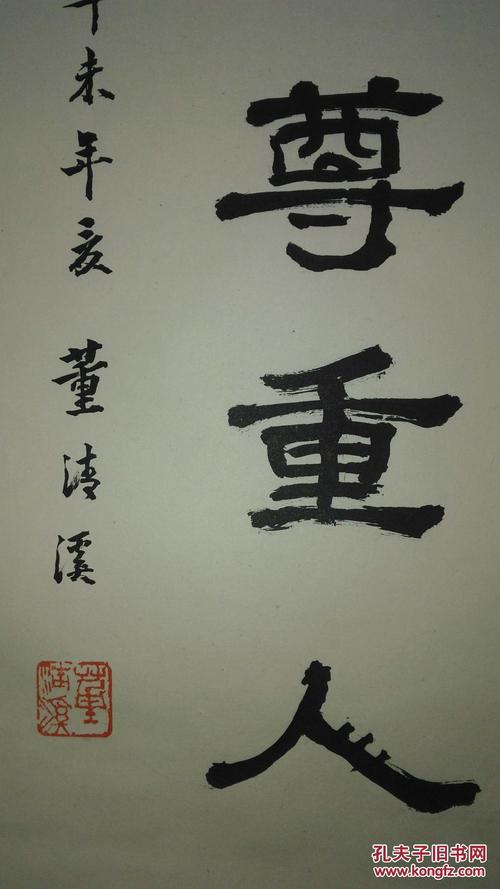 尊重人
未年夏 董清溪
董清溪
孔夫子旧书网
www.kongfz.com